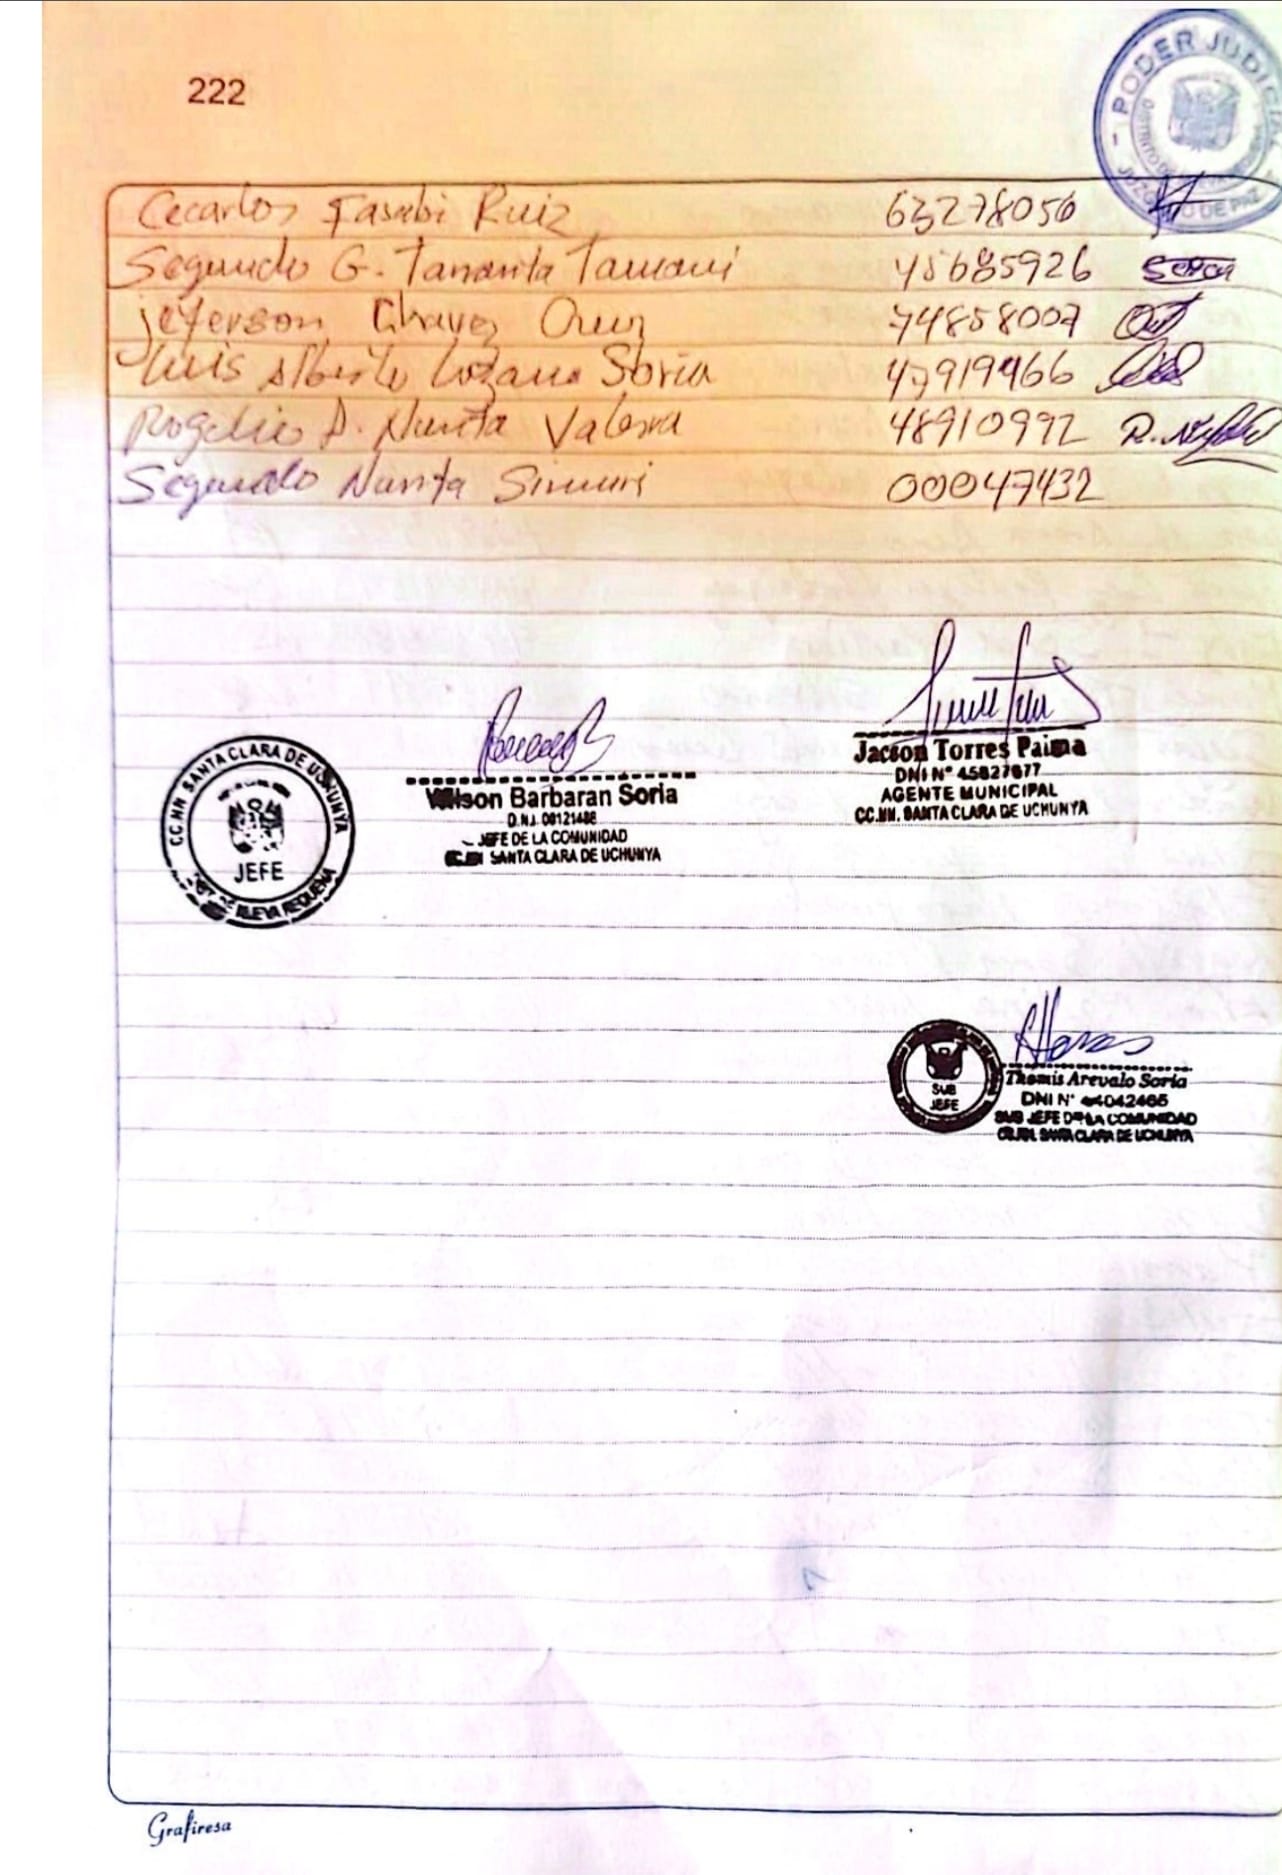 222
PODER JUDICIAL
JUZGADO DE PAZ
Cecarlos Fasabi Ruiz 63278056
Segundo G. Tananta Tamani 45685926
jeferson Chavez 74858007
Luis Alberto Lozano Soria 47919966
Rogelio D. Nunta Valera 48910992 R.
Segundo Nunta 00047432
CC.NN SANTA CLARA DE UCHUNYA
JEFE
DIST. DE NUEVA REQUENA
Wilson Barbaran Soria
D.N.I. 00121488
JEFE DE LA COMUNIDAD
SANTA CLARA DE UCHUNYA
Jacson Torres Paima
DNI Nº 45827677
AGENTE MUNICIPAL
CC.NN. SANTA CLARA DE UCHUNYA
SUB
JEFE
Themis Arevalo Soria
DNI N° 44042465
SUB JEFE DE LA COMUNIDAD
CC.NN. SANTA CLARA DE UCHUNYA
Grafiresa